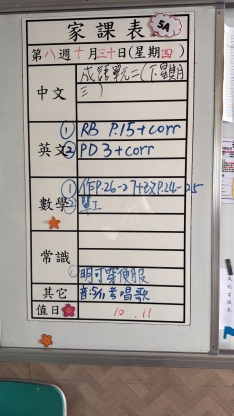 家課表 5A
第八週十月三十日(星期四)
中文
成語單元二(下星期
三)
英文
① RB P.15+corr
② PD3+corr
數學
① 作P.26-27+改P.24-25
② 單工
常識
明可穿便服
其它
音:5/11考唱歌
值日
10.11